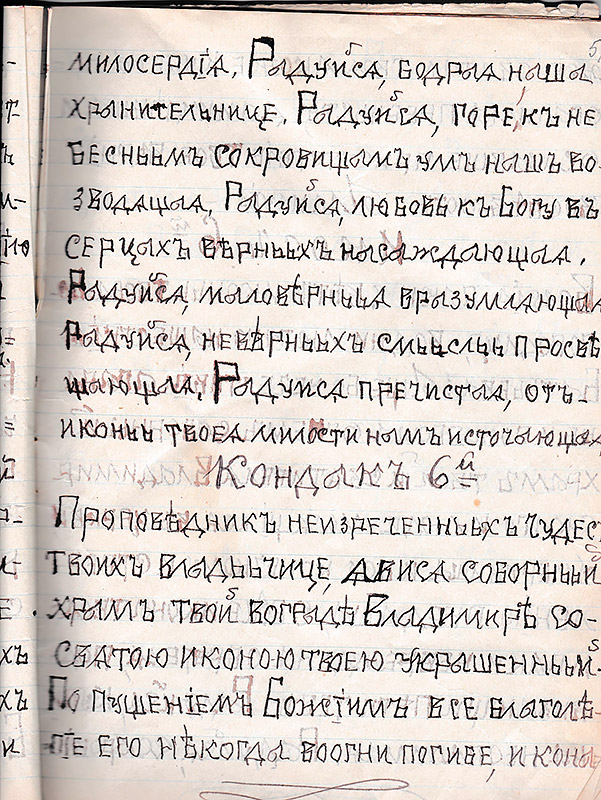 милосердїѧ, Радуйсѧ, бодраѧ наша
хранительнице. Радуйсѧ, горе, къ не
беснымъ сокровищамъ умъ нашъ во-
зводѧщаѧ, Радуйсѧ, любовь къ Богу въ
сердцахъ вѣрныхъ насаждающаѧ.
Радуйсѧ, маловѣрныѧ вразумлѧющаѧ
Радуйсѧ, невѣрныхъ смыслы просвѣ
щающаѧ, Радуйсѧ пречистаѧ, отъ-
иконы твоеѧ милости намъ источающаѧ
Кондакъ 6й
Проповѣдникъ неизреченныхъ чудес
твоихъ владычице, ѧвисѧ соборный
храмъ твой вограде Владимирѣ со-
свѧтою иконою твоею украшенный.
По пущенїемъ Божїимъ все благолѣ-
пїе его нѣкогда воогни погибе, и коны